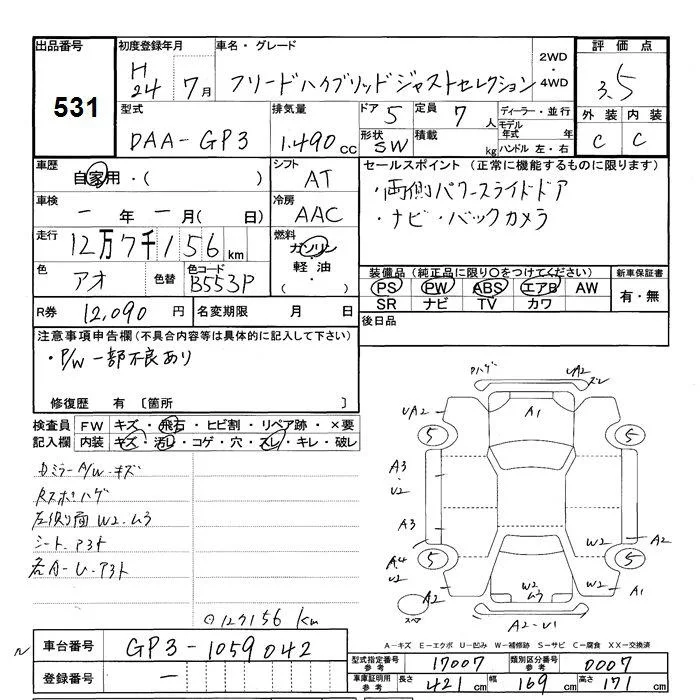 出品番号 初度登録年月 車名・グレード 2WD・4WD 評価点
531 H24 7月 フリードハイブリッドジャストセレクション 3.5
型式 排気量 ドア 5 定員 7人 ディーラー・並行 外装 内装
DAA-GP3 1.490cc 形状 SW 積載 kg モデル年式 年 ハンドル 左・右 C C
車歴 自家用・( ) シフト AT セールスポイント(正常に機能するものに限ります)
・両側パワースライドドア
車検 ー年ー月(日) 冷房 AAC ・ナビ・バックカメラ
走行 12万7千156km 燃料 ガソリン・軽油・( )
色 アオ 色替 色コード B553P 装備品(純正品に限り○をつけてください) 新車保証書
PS PW ABS エアB AW 有・無
SR ナビ TV カワ
R券 12,090円 名変期限 月 日 後日品
注意事項申告欄(不具合内容等は具体的に記入して下さい)
・P/W一部不良あり
修復歴 有 〔箇所 〕
検査員 FW キズ・飛石・ヒビ割・リペア跡・×要
記入欄 内装 キズ・汚レ・コゲ・穴・スレ・キレ・破レ
Dミラー A/W・キズ
Rスポ・ハゲ
左側面 W2.ムラ
シート.
各A-U.
127156 km
車台番号 GP3-1059042
登録番号 ー
Pハゲ UA2 スレ
UA2 A1 A2
5 5
A3・U2
A3 W2 A2
5 5
A4 U2 W2 W2 ムラ A2
A2 スペア A2-U1
A-キズ E-エクボ U-凹み W-補修跡 S-サビ C-腐食 XX-交換済
型式指定番号 参考 17007 類別区分番号 参考 0007
車庫証明用 参考 長さ 421cm 幅 169cm 高さ 171cm